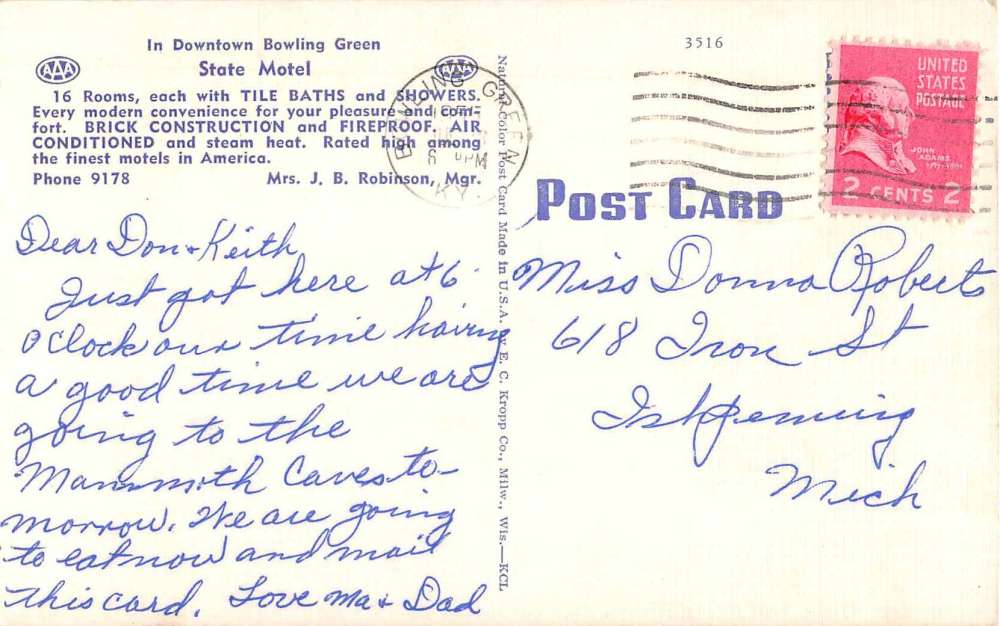 In Downtown Bowling Green
AAA State Motel AAA
16 Rooms, each with TILE BATHS and SHOWERS.
Every modern convenience for your pleasure and com-
fort. BRICK CONSTRUCTION and FIREPROOF. AIR
CONDITIONED and steam heat. Rated high among
the finest motels in America.
Phone 9178 Mrs. J. B. Robinson, Mgr.
BOWLING GREEN
6 PM
KY.
Dear Don & Keith
Just got here at 6
o clock our time having
a good time we are
going to the
Mammoth Caves to-
morrow. We are going
to eat now and mail
this card. Love Ma & Dad
Natural Color Post Card Made in U.S.A. by E. C. Kropp Co., Milw., Wis.—KCL
3516
UNITED
STATES
POSTAGE
JOHN
ADAMS
2 CENTS 2
POST CARD
Miss Donna Roberts
618 Iron St
Ishpeming
Mich